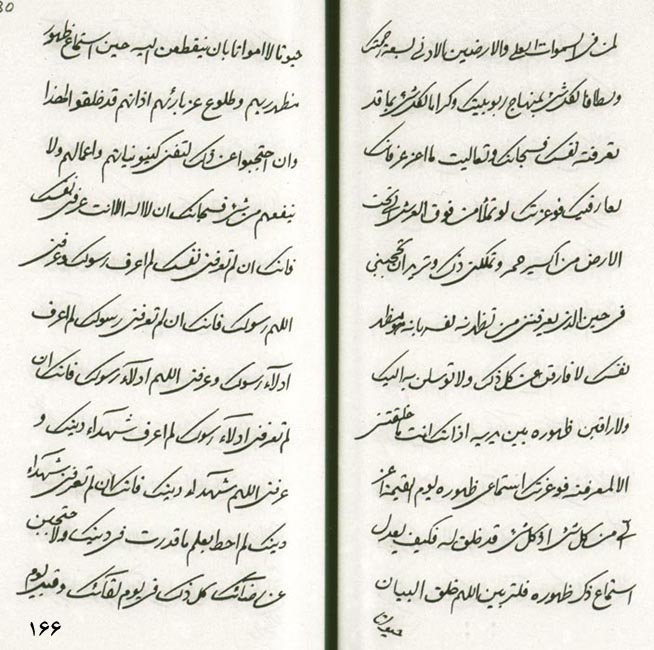 لمن فی السموات العلی والارضین الادنی لسعة رحمتک
ولطافا لکلشیء بمنهاج ربوبیتک وکراما لکلشیء بما قد
تعرفته نفسک فسبحانک وتعالیت ما اعز عرفانک
لعارفیک فوعزتک لو تملأ من فوق العرش الی تحت
الارض من اکسیر حمر و تملکنی ذلک و ترید ان تحجبنی
فی حین الذی یعرفنی من تظهرنه نفسه بانه هو مظهر
نفسک لا فارقن عن کل ذلک ولاتوسلن به الیک
ولاراقبن ظهوره بین یدیه اذ انک انت ما خلقتنی
الا لمعرفته فوعزتک استماعی ظهوره لیوم القیمة اعز
من کل شیء اذ کل شیء قد خلق له فکیف یعدل
استماع ذکر ظهوره فلتربین اللهم خلق البیان
حیوتا لا امواتا بان ینقطعن الیه حین استماع ظهور
مظهر ربهم وطلوع عز بارئهم اذ انهم قد خلقوا لهذا
وان احتجبوا عن ذلک لتفنی کینونیاتهم واعمالهم ولا
ینفعهم من شیء فسبحانک ان لا اله الا انت عرفنی نفسک
فانک ان لم تعرفنی نفسک لم اعرف رسولک وعرفنی
اللهم رسولک فانک ان لم تعرفنی رسولک لم اعرف
ادلاء رسولک وعرفنی اللهم ادلاء رسولک فانک ان
لم تعرفنی ادلاء رسولک لم اعرف شهداء دینک و
عرفنی اللهم شهداء دینک فانک ان لم تعرفنی شهداء
دینک لم احط بعلم ما قدرت فی دینک ولا تحتجبن
عن رضائک کل ذلک فی یوم لقائک وقبل یوم
۱۶۶